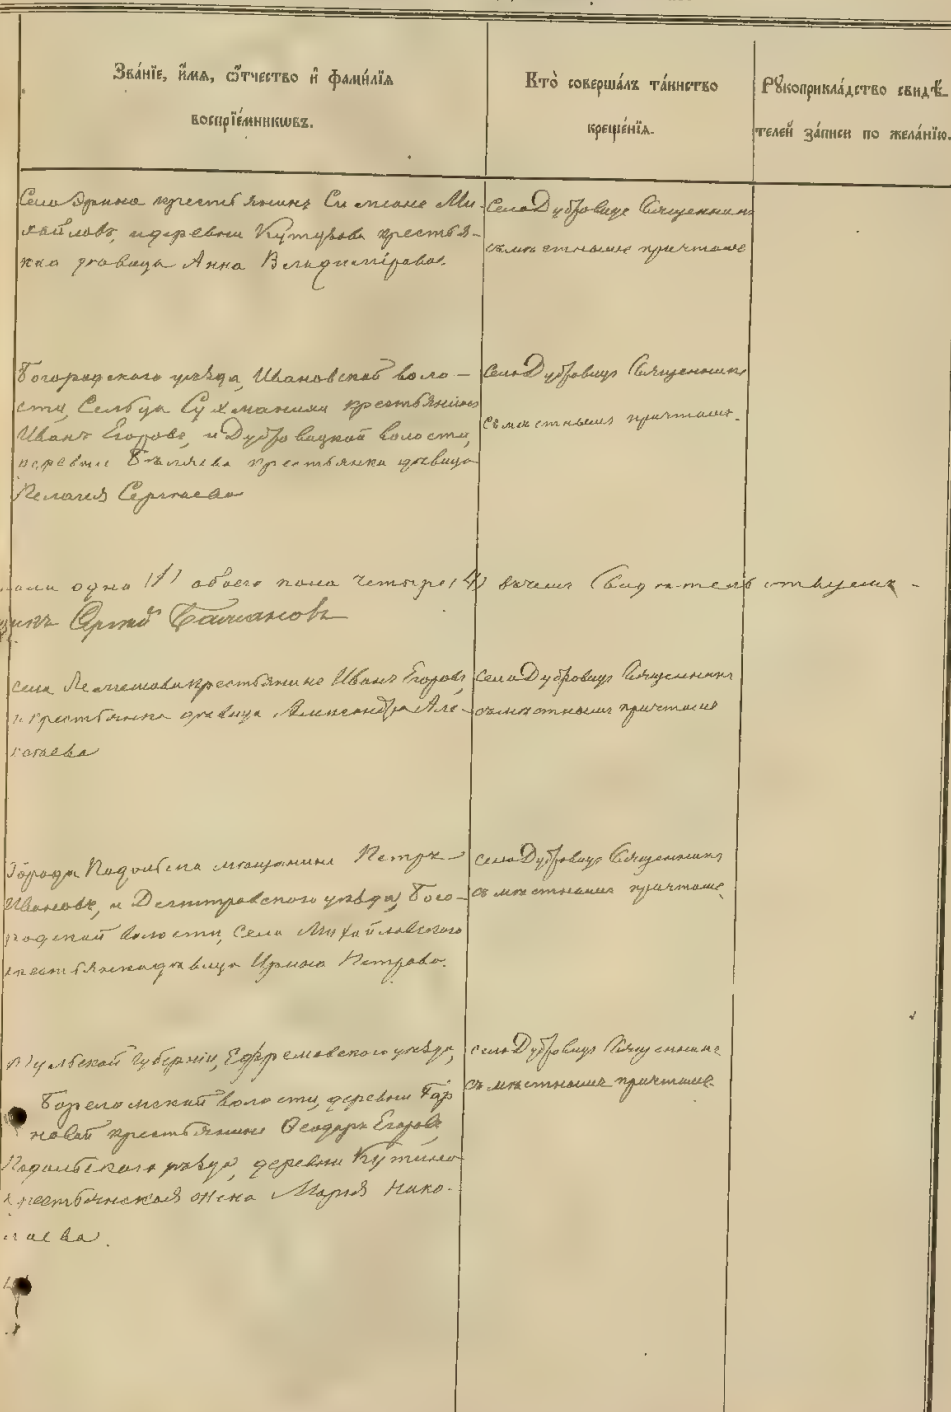 Зва́нїе, и́мѧ, ѿтчество и҆ фамѝлїѧ
воспрїе́мникѡвъ.
Кто̀ соверша́лъ та́инство
креще́нїѧ.
Рꙋкоприкла́дство свидѣ-
телей за́писи по жела́нїю.
Села Ерина крестьянинъ Симеонъ Ми-
хайловъ, и деревни Кутузова крестьян-
ка девица Анна Владимірова.
Села Дубровицъ Священникъ
съ местнымъ причтомъ
Богородскаго уѣзда, Ивановской воло-
сти, Сельца крестьянинъ
Иванъ Егоровъ, и Дубровицкой волости,
деревни Бѣляева крестьянка девица
Пелагія Сергѣева
Села Дубровицъ Священникъ
съ местнымъ причтомъ.
одна (1) обоего пола четыре (4)
Сергій
села Лемешова крестьянинъ Иванъ Егоровъ,
и крестьянка девица Александра Але-
ксѣева
Села Дубровицъ Священникъ
съ местнымъ причтомъ
Города Подольска мѣщанинъ Петръ
Ивановъ, и Дмитровскаго уѣзда, Бого-
родской волости, села Михайловскаго
крестьянка девица Ирина Петрова.
села Дубровицъ Священникъ
съ местнымъ причтомъ
Тульской губерніи, Ефремовскаго уѣзда,
волости, деревни
крестьянинъ Ѳеодоръ Егоровъ
Подольскаго уѣзда, деревни
крестьянская жена Марія Нико-
лаева.
села Дубровицъ Священникъ
съ местнымъ причтомъ.